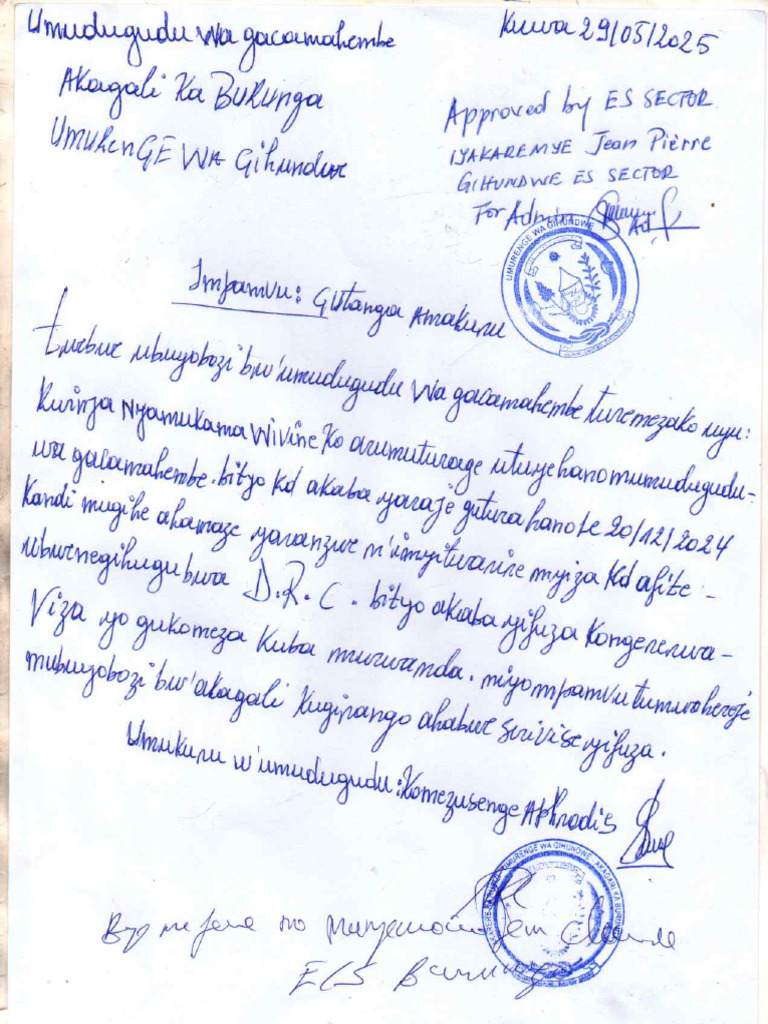 Umudugudu wa gacamahembe
Kuwa 29/05/2025
Akagali Ka BURUnga
UmuRenGE WA Gihundwe
Approved by ES SECTOR
IYAKAREMYE Jean Pièrre
GIHUNDWE ES SECTOR
For Admin
UMURENGE WA GIHUNDWE
Impamvu: Gutanga Amakuru
twebwe ubuyobozi bw'umudugudu wa gacamahembe turemezako uyu:
Kwinja Nyamukama Wivine Ko arumuturage utuyehanomumudugudu-
wa gacamahembe. bityo Kd akaba yaraje gutura hano le 20/12/2024
Kandi mugihe ahamaze yaranzwe n'imyitwarire myiza Kd afite -
ubwenegihugu bwa D.R.C. bityo akaba yifuza Kongererwa -
Viza yo gukomeza Kuba murwanda. niyo mpamvu tumwohereje
mubuyobozi bw'akagali Kugirango ahabwe serivise yifuza.
Umukuru w'umudugudu: Komezusenge Aphrodis
UMURENGE WA GIHUNDWE - AKAGARI KA BURUNGA